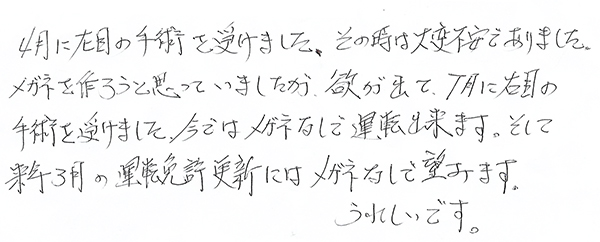 4月に左目の手術を受けました、その時は大変不安でありました。
メガネを作ろうと思っていましたが、欲が出て、7月に右目の
手術を受けました。今ではメガネなしで運転出来ます。そして
来年3月の運転免許更新にはメガネなしで望みます。
うれしいです。